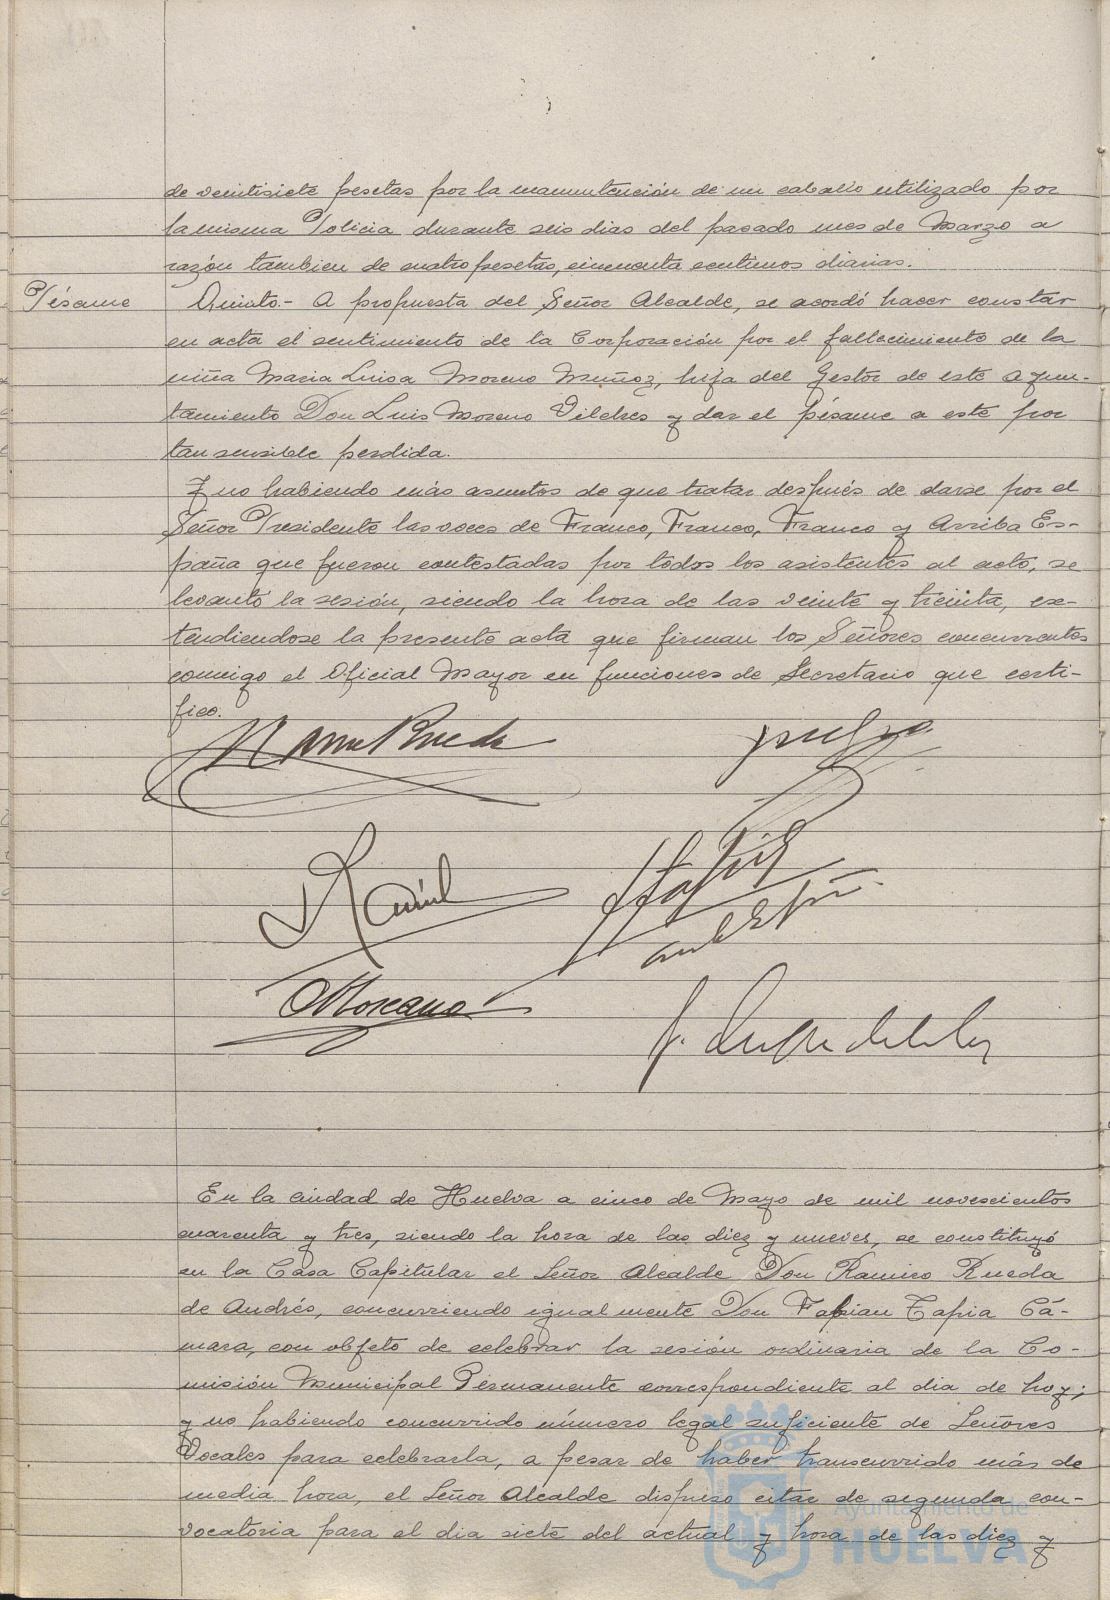 de veintisiete pesetas por la manutención de un caballo utilizado por
la misma Policia durante seis dias del pasado mes de Marzo a
razón tambien de cuatro pesetas, cincuenta centimos diarias.
Pésame
Quinto.- A propuesta del Señor Alcalde, se acordó hacer constar
en acta el sentimiento de la Corporación por el fallecimiento de la
niña Maria Luisa Moreno Muñoz, hija del Gestor de este Ayun-
tamiento Don Luis Moreno Vilches y dar el pésame a este por
tan sensible perdida.
Y no habiendo más asuntos de que tratar después de darse por el
Señor Presidente las voces de Franco, Franco, Franco y Arriba Es-
paña que fueron contestadas por todos los asistentes al acto, se
levantó la sesión, siendo la hora de las veinte y treinta, ex-
tendiendose la presente acta que firman los Señores concurrentes
conmigo el Oficial Mayor en funciones de Secretario que certi-
fico.
Rueda
Moreano
En la ciudad de Huelva a cinco de Mayo de mil novescientos
cuarenta y tres, siendo la hora de las diez y nueves, se constituyó
en la Casa Capitular el Señor Alcalde Don Ramiro Rueda
de Andrés, concurriendo igualmente Don Fabian Tapia Cá-
mara, con objeto de celebrar la sesión ordinaria de la Co-
misión Municipal Permanente correspondiente al dia de hoy;
y no habiendo concurrido número legal suficiente de Señores
Vocales para celebrarla, a pesar de haber transcurrido más de
media hora, el Señor Alcalde dispuso citar de segunda con-
vocatoria para el dia siete del actual y hora de las diez y
Ayuntamiento de
HUELVA